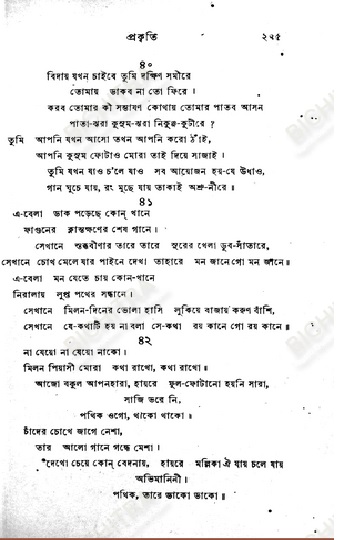 প্রকৃতি ২২৫
৪০
বিদায় যখন চাইবে তুমি দক্ষিণ সমীরে
তোমায় ডাকব না তো ফিরে ।
করব তোমার কী সম্ভাষণ কোথায় তোমার পাতব আসন
পাতা-ঝরা কুসুম-ঝরা নিকুঞ্জ-কুটীরে ?
তুমি আপনি যখন আসো তখন আপনি করো ঠাঁই,
আপনি কুসুম ফোটাও মোরা তাই দিয়ে সাজাই ।
তুমি যখন যাও চ'লে যাও সব আয়োজন হয়-যে উধাও,
গান ঘুচে যায়, রং মুছে যায় তাকাই অশ্রু-নীরে ।
৪১
এ-বেলা ডাক পড়েছে কোন্ খানে
ফাগুনের ক্লান্তক্ষণের শেষ গানে ।
সেখানে স্তব্ধবীণার তারে তারে সুরের খেলা ডুব-সাঁতারে,
সেখানে চোখ মেলে যার পাইনে দেখা তাহারে মন জানে গো মন জানে ॥
এ-বেলা মন যেতে চায় কোন-খানে
নিরালায় লুপ্ত পথের সন্ধানে ।
সেখানে মিলন-দিনের ভোলা হাসি লুকিয়ে বাজায় করুণ বাঁশি,
সেখানে যে-কথাটি হয় না বলা সে-কথা রয় কানে গো রয় কানে ॥
৪২
না যেয়ো না যেয়ো নাকো ।
মিলন পিয়াসী মোরা কথা রাখো, কথা রাখো ॥
আজো বকুল আপনহারা, হায়রে ফুল-ফোটানো হয়নি সারা,
সাজি ভরে নি,
পথিক ওগো, থাকো থাকো ॥
চাঁদের চোখে জাগে নেশা,
তার আলো গানে গন্ধে মেশা ।
দেখো চেয়ে কোন্ বেদনায়, হায়রে মল্লিকা ঐ যায় চলে যায়
অভিমানিনী ।
পথিক, তারে ডাকো ডাকো ॥